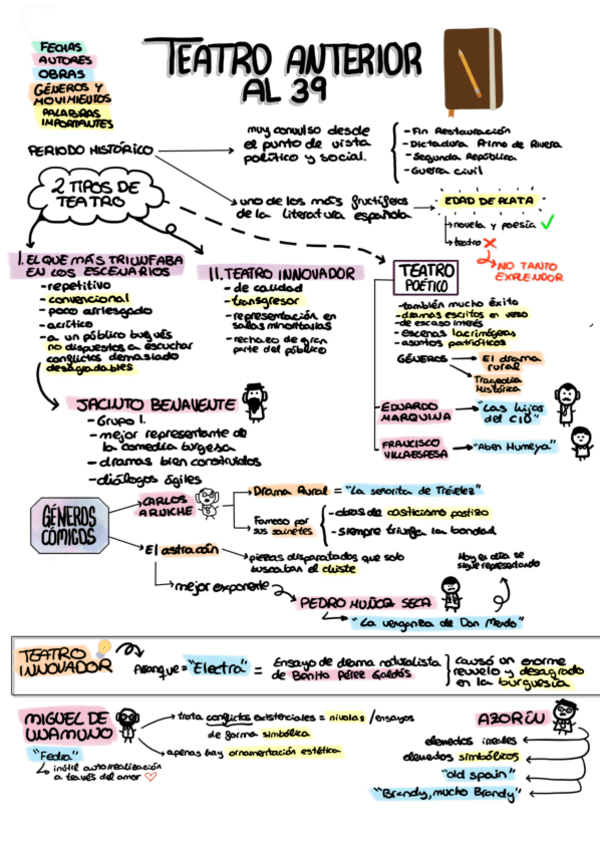 FECHAS
AUTORES
OBRAS
GÉNEROS Y
MOVIMIENTOS
PALABRAS
IMPORTANTES
TEATRO ANTERIOR
AL 39
PERIODO HISTÓRICO
muy convulso desde
el punto de vista
político y social.
- Fin Restauración
- Dictadura Primo de Rivera
- Segunda República
- Guerra civil
uno de los más fructíferos
de la literatura española
EDAD DE PLATA
novela y poesía ✓
teatro ✗
NO TANTO
EXPLENDOR
2 TIPOS DE
TEATRO
I. EL QUE MÁS TRIUNFABA
EN LOS ESCENARIOS
- repetitivo
- convencional
- poco arriesgado
- acrítico
- a un público bugués
no dispuestos a escuchar
conflictos demasiado
desagadables
II. TEATRO INNOVADOR
- de calidad
- transgresor
- representación en
salas minoritarias
- rechazo de gran
parte del público
TEATRO
POÉTICO
- también mucho éxito
- dramas escritos en verso
- de escaso interés
- escenas lacrimógenas
- asuntos patrióticos
GÉNEROS
El drama
rural
Tragedia
Histórica
EDUARDO
MARQUINA
"Las hijas
del CID"
FRANCISCO
VILLAESPESA
"Aben Humeya"
JACINTO BENAVENTE
- Grupo I.
- mejor representante de
la comedia burgesa
- dramas bien construidos
- diálogos ágiles
GÉNEROS
CÓMICOS
CARLOS
ARNICHE
Drama Rural = "La señorita de Trévelez"
Famoso por
sus sainetes
- obras de casticismo postizo
- siempre triunfa la bondad
El astracán
piezas disparatadas que solo
buscaban el chiste
mejor exponente
PEDRO MUÑOZ SECA
"La venganza de Don Mendo"
Hoy en día se
sigue representando
TEATRO
INNOVADOR
Arranque = "Electra" =
Ensayo de drama naturalista
de Benito Pérez Galdós
causó un enorme
revuelo y desagrado
en la burguesía
MIGUEL DE
UNAMUNO
"Fedra"
inútil autorrealización
a través del amor ♡
trata conflictos existenciales = nivolas / ensayos
de forma simbólica
apenas hay ornamentación estética
AZORÍN
elementos irreales
elementos simbólicos
"old spain"
"Brandy, mucho Brandy"